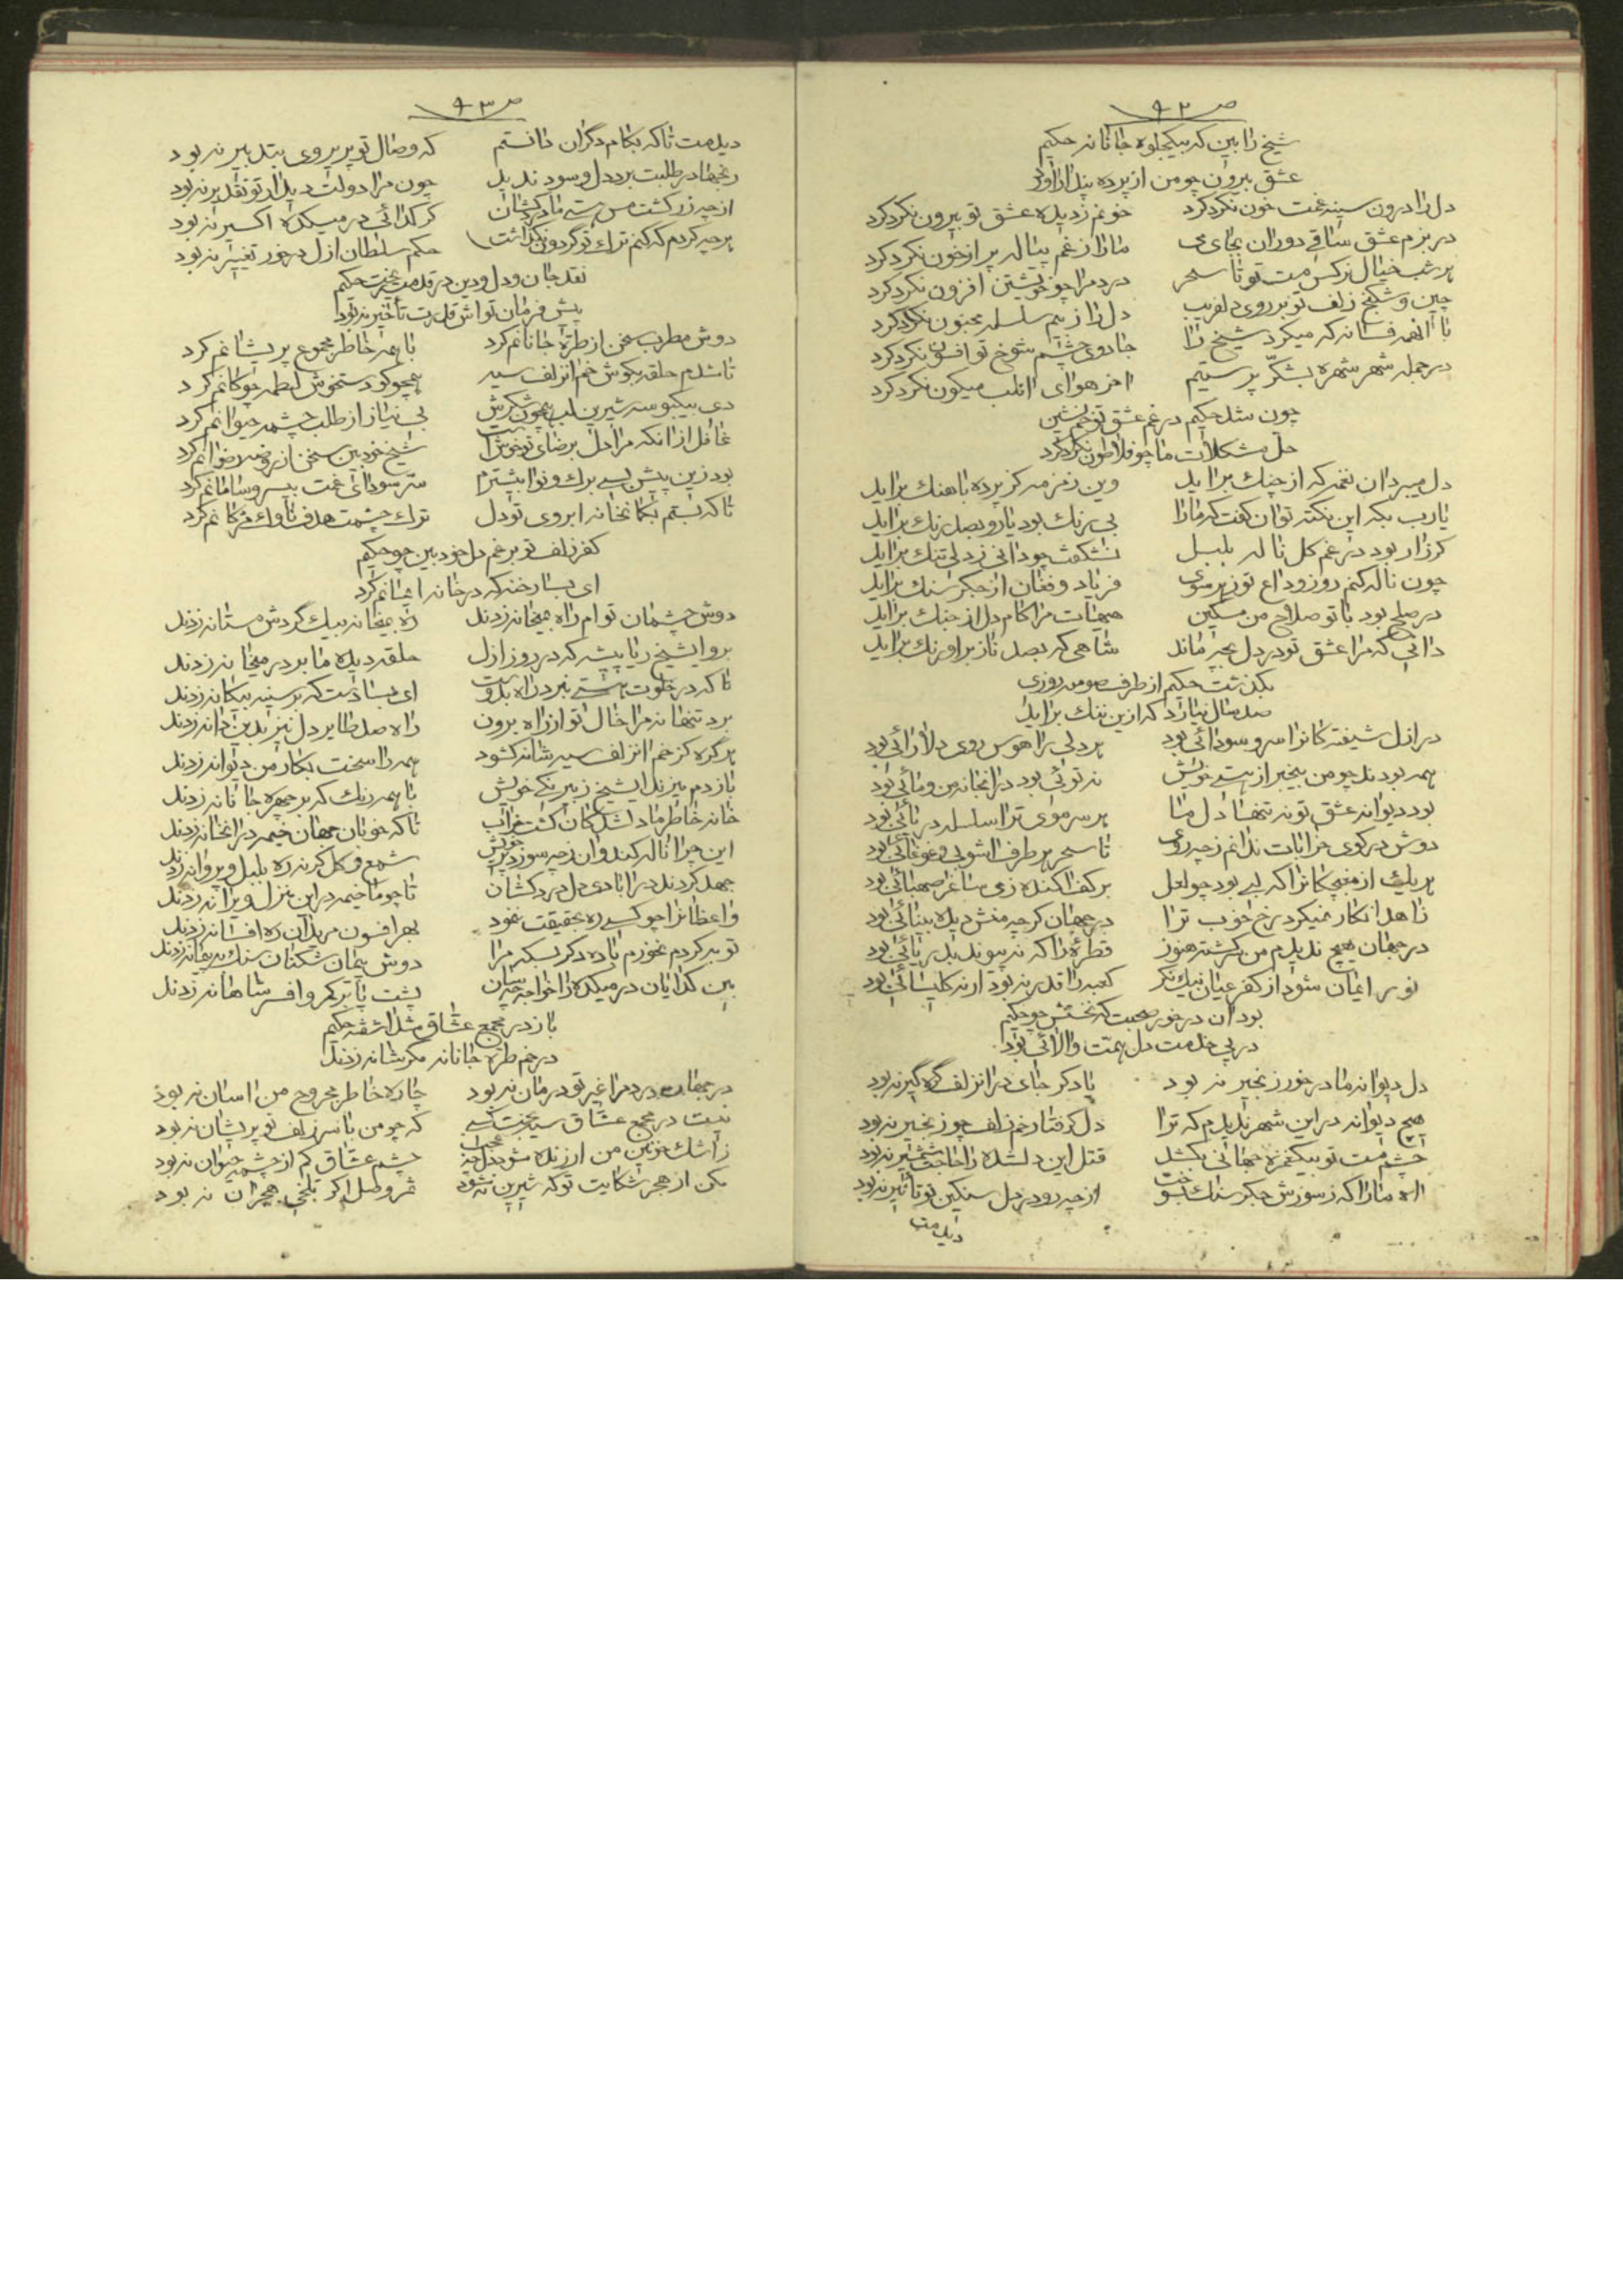 ص ۹۲
شیخ را بین که بیکجلوه جانانه حکیم
عشق بیرون چو من از پرده پندار آورد
دل را درون سینه غمت خون نکرد کرد خونم ز دیده عشق تو بیرون نکرد کرد
در بزم عشق ساقی دوران بجای می ما را ز غم پیاله پر از خون نکرد کرد
هر شب خیال نرکس مست تو تا سحر درد مرا چو خویشتن افزون نکرد کرد
چین و شکنج زلف تو بر روی دلفریب دل را ز بیم سلسله مجنون نکرد کرد
با آنهمه فسانه که میکرد شیخ را جادوی چشم شوخ تو افسون نکرد کرد
در جمله شهر شهره بشکر پرستیم آخر هوای آنلب میکون نکرد کرد
چون شد حکیم در غم عشق تو خم نشین
حل مشکلات ما چو فلاطون نکرد کرد
دل میبرد آن نغمه که از چنک براید وین زمزمه کز پرده باهنک براید
یارب بکه این نکته توان کفت که ما را بی رنک بود یار و بصد رنک براید
کر زار بود در غم کل ناله بلبل نشکفت چو دانی ز دلی تنک براید
چون ناله کنم روز وداع تو ز هر سوی فریاد و فغان از جکر سنک براید
در صلح بود با تو صلاح من مسکین هیهات مرا کام دل از جنک براید
دانی که مرا عشق تو در دل بچه ماند شاهی که بصد ناز بر اورنک براید
بکذشت حکیم از طرف صومعه روزی
صد سال نیارد که ازین ننک براید
در ازل شیفته کانرا سر و سودائی بود هر دلی را هوس روی دلارائی بود
همه بودند چو من بیخبر از هستی خویش نه توئی بود در آنجا نه من و مائی بود
بود دیوانه عشق تو نه تنها دل ما هر سر موی ترا سلسله در پائی بود
دوش در کوی خرابات ندانم ز چه روی تا سحر هر طرف آشوبی و غوغائی بود
هر یک از مغبچکانرا که لبی بود چو لعل بر کف افکنده ز می ساغر صهبائی بود
زاهد انکار نمیکرد رخ خوب ترا در جهان کرچه منش دیده بینائی بود
در جهان هیچ ندیدم من سرکشته هنوز قطرهٔ را که نه پیوند بدریائی بود
نور ایمان شود از کفر عیان نیک نکر کعبه را قدر نه بود ار نه کلیسائی بود
بود آن در خور صحبت که نخستش چو حکیم
در پی خدمت دل همت والائی بود
دل دیوانه ما در خور زنجیر نه بود یا دکر جای در آنزلف کره کیر نه بود
هیچ دیوانه در این شهر ندیدم که ترا دل کرفتار خم زلف چو زنجیر نه بود
چشم مست تو بیکغمزه جهانی بکشد قتل این دلشده را حاجت شمشیر نه بود
آه ما را که ز سوزش جکر سنک بسوخت از چه رو در دل سنکین تو تاثیر نه بود
دیدمت
ص ۹۳
دیدمت تا که بکام دکران دانستم که وصال تو پریروی بتدبیر نه بود
رنجها در طلبت برد دل و سود ندید چون مرا دولت دیدار تو تقدیر نه بود
از چه زر کشت مس هستی ما دردکشان کر کدائی در میکده اکسیر نه بود
هر چه کردم که کنم ترک تو کردون نکذاشت حکم سلطان ازل در خور تغییر نه بود
نقد جان و دل و دین در قدمت ریخت حکیم
پیش فرمان تواش قدرت تأخیر نه بود
دوش مطرب سخن از طرهٔ جانانم کرد با همه خاطر مجموع پریشانم کرد
تا شدم حلقه بکوش خم آنزلف سیه همچو کو دستخوش لطمه چوکانم کرد
دی بیکبوسه شیرین لب همچون شکرش بی نیاز از طلب چشمه حیوانم کرد
غافل از آنکه مرا دل برضای تو خوش است شیخ خودبین سخن از روضه رضوانم کرد
بود زین پیش بسی برک و نوا بیشترم سر سودای غمت بیسر و سامانم کرد
تا که بستم بکمانخانه ابروی تو دل ترک چشمت هدف ناوک مژکانم کرد
کفر زلف تو برغم دل خودبین چو حکیم
ای بسا رخنه که در خانه ایمانم کرد
دوش چشمان توام راه بمیخانه زدند ره میخانه بیک کردش مستانه زدند
برو ایشیخ ریا پیشه که در روز ازل حلقه دیده ما بر در میخانه زدند
تا که در خلوت هستی نبرد راه بدوست ای بسا دست که بر سینه بیکانه زدند
برد تنها نه مرا خال تو از راه برون راه صد طایر دل نیز بدین دانه زدند
هر کره کز خم آنزلف سیه شانه کشود همه را سخت بکار من دیوانه زدند
باز دم میزند ایشیخ ز بیرنکی خویش با همه رنک که بر چهره جانانه زدند
خانه خاطر ما دلشدکان کشت خراب تا که خوبان جهان خیمه در آنخانه زدند
این چرا ناله کند وان ز چه سوزد پر خویش شمع و کل کر نه ره بلبل و پروانه زدند
جهد کردند در آبادی دل دردکشان تا چو ما خیمه در این منزل ویرانه زدند
واعظانرا چو کسی ره بحقیقت ننمود بهر افسون مریدان ره افسانه زدند
توبه کردم نخورم باده دکر بسکه مرا دوش پیمان شکنان سنک به پیمانه زدند
بین کدایان در میکده را خواجه چه سان پشت پا بر کمر و افسر شاهانه زدند
باز در مجمع عشاق شد آشفته حکیم
در خم طره جانانه مکر شانه زدند
در جهان درد مرا غیر تو درمان نه بود چاره خاطر مجروح من آسان نه بود
نیست در مجمع عشاق سیه بخت کسی که چو من با سر زلف تو پریشان نه بود
ز اشک خونین من ار زنده شود دل چه عجب چشم عشاق کم از چشمه حیوان نه بود
مکن از هجر شکایت تو که شیرین نشود ثمر وصل اکر تلخی هجران نه بود